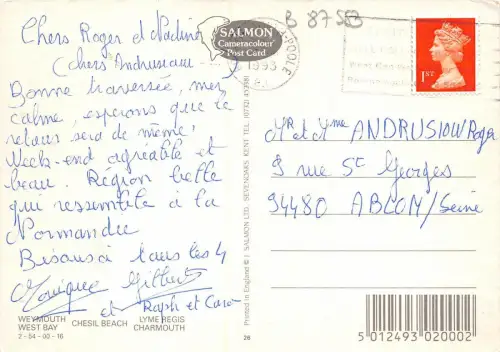 Chers Roger et Nadine
(chers Andrusiow
Bonne traversée, mer
calme, espérons que le
retour sera de même!
Week-end agréable et
beau. Région belle
qui ressemble à la
Normandie
Bisous à tous les 4
Monique Gilbert
et Raph et Caro
WEYMOUTH
WEST BAY
CHESIL BEACH
LYME REGIS
CHARMOUTH
2-54-00-16
SALMON
Cameracolour
Post Card
B 87 SB
POOLE
1993
1ST
Printed in England © J. SALMON LTD. SEVENOAKS KENT TEL: (0732) 452381
26
Mr et Mme ANDRUSIOW Roger
9 rue St Georges
94480 ABLON/Seine
5 012493 020002